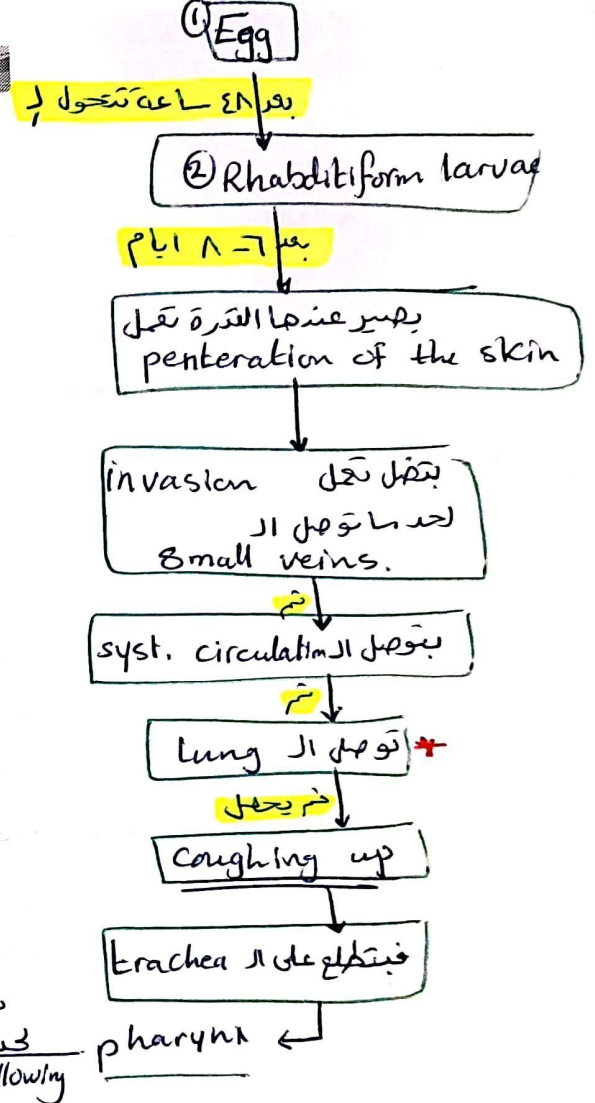 ① Egg
بعد ٤٨ ساعة تتحول لـ
② Rhabditiform larvae
بعد ٦-٨ ايام
بصير عندها القدرة تعمل
penteration of the skin
بتضل تعمل invasion
لحد ما توصل ال
small veins.
ثم
بتوصل ال syst. circulation
ثم
توصل ال Lung *
ثم يحصل
Coughing up
فبتطلع على ال trachea
pharynx